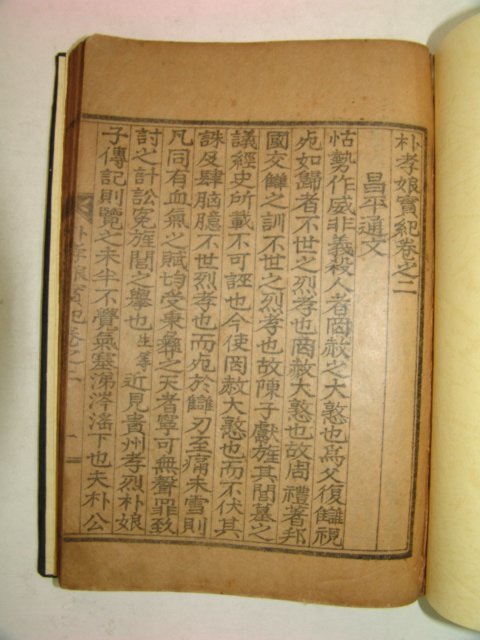 朴孝娘實紀卷之二
昌平通文
怙勢作威非義殺人者罔赦之大憝也爲父復讎視
死如歸者不世之烈孝也罔赦大憝也故周禮著邦
國交讎之訓不世之烈孝也故陳子獻旌其閭墓之
議經史所載不可誣也今使罔赦大憝也而不伏其
誅及肆腦臆不世烈孝也而死於讎刃至痛未雪則
凡同有血氣之賦均受秉彝之天者寧可無聲罪致
討之計訟冤旌閭之擧也生等近見貴州孝烈朴娘
子傳記則覽之未半不覺氣塞涕泗滂下也夫朴公
朴孝娘實紀卷之二
一